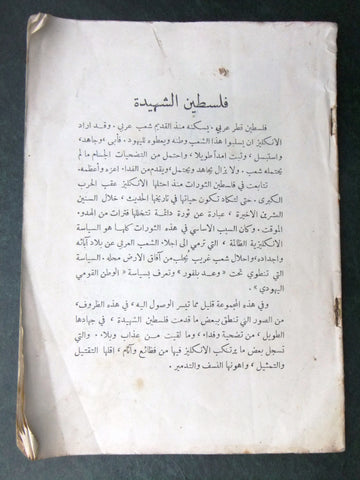 فلسطين الشهيدة
فلسطين قطر عربي، يسكنه منذ القديم شعب عربي. وقد اراد
الانكليز ان يسلبوا هذا الشعب وطنه ويعطوه لليهود. فأبى، وجاهد،
واستبسل، وثبت امداً طويلا، واحتمل من التضحيات الجسام ما لم
يحتمله شعب. ولا يزال يجاهد ويحتمل، ويقدم من الفداء اعزه وأعظمه.
تتابعت في فلسطين الثورات منذ احتلها الانكليز عقب الحرب
الكبرى، حتى لتكاد تكون حياتها في تاريخها الحديث، خلال السنين
العشرين الاخيرة، عبارة عن ثورة دائمة تتخللها فترات من الهدوء
الموقت. وكان السبب الاساسي في هذه الثورات كلها هو السياسة
الانكليزية الظالمة، التي ترمي الى اجلاء الشعب العربي عن بلاد آبائه
واجداده، واحلال شعب غريب يجلب من آفاق الارض محله. السياسة
التي تنطوي تحت «وعد بلفور» وتعرف بسياسة «الوطن القومي
اليهودي».
وفي هذه المجموعة قليل مما تيسر الوصول اليه، في هذه الظروف،
من الصور التي تنطق ببعض ما قدمت فلسطين الشهيدة، في جهادها
الطويل، من تضحية وفداء، وما لقيت من عذاب وبلاء. والتي
تسجل بعض ما يرتكب الانكليز فيها من فظائع وآثام، اقلها التقتيل
والتمثيل، واهونها النسف والتدمير.